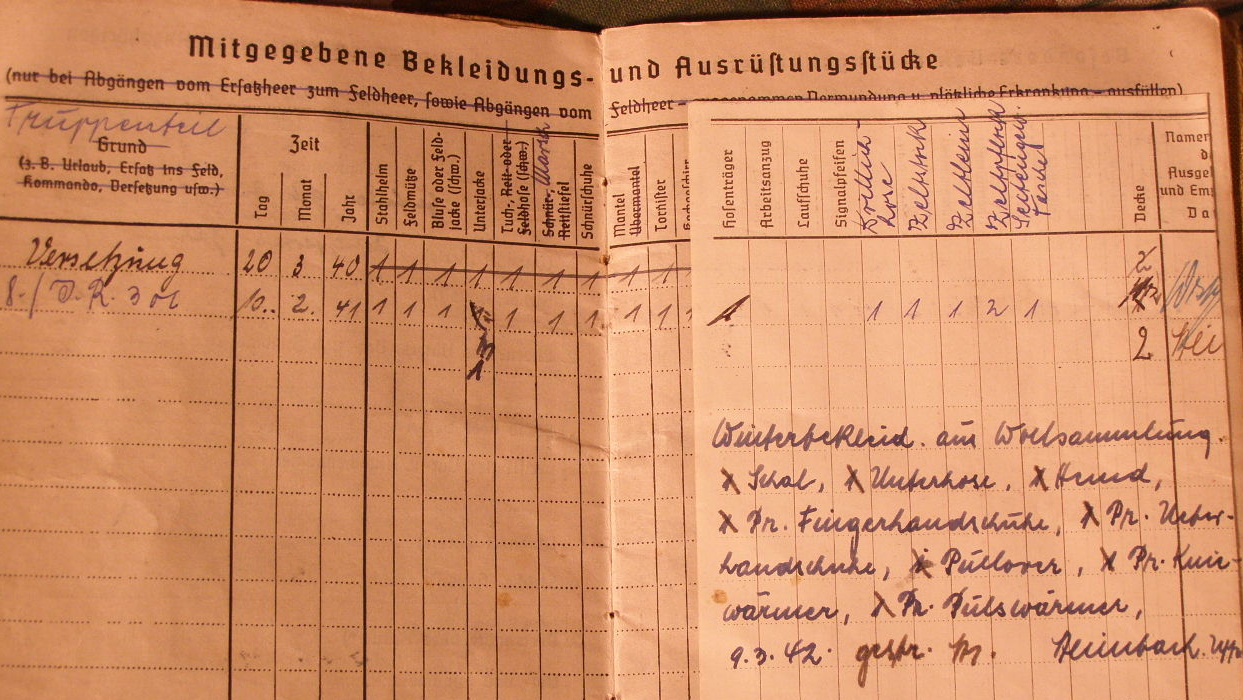 Mitgegebene Bekleidungs- und Ausrüstungsstücke
(nur bei Abgängen vom Ersatzheer zum Feldheer, sowie Abgängen vom Feldheer – ausgenommen Verwundung u. plötzliche Erkrankung – ausfüllen)
Truppenteil
Grund
(z. B. Urlaub, Ersatz ins Feld,
Kommando, Versetzung usw.)
Zeit
Tag
Monat
Jahr
Stahlhelm
Feldmütze
Bluse oder Feld-
jacke (schw.)
Unterjacke
Tuch-, Reit- oder
Feldhose (schw.)
Schnür-, Marsch
Reitstiefel
Schnürschuhe
Mantel
Übermantel
Tornister
Hosenträger
Arbeitsanzug
Laufschuhe
Signalpfeifen
Drillich-
hose
Zeltstock
Zeltleine
Decke
Namen
d
Ausgel
und Em
Da
Versetzung 20 3 40 1 1 1 1 1 1 1 1 1 2
8./ J.R. 306 10. 2. 41 1 1 1 1 1 1 1 1 1 1 1 1 1 2 1
1 2
Winterbekleid. aus Wollsammlung.
Schal, Unterhose, Hemd,
Pr. Fingerhandschuhe, Pr. Ueber-
handschuhe, Pullover, Pr. Knie-
wärmer, Pr. Pulswärmer,
9.3.42. Steinbach. Uffz